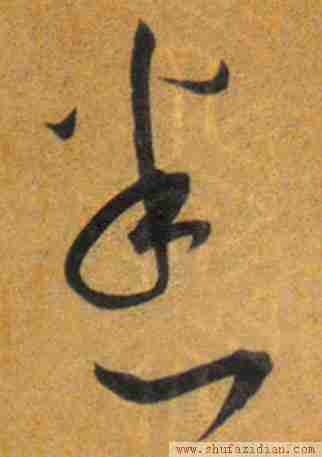 悉
www.shufazidian.com